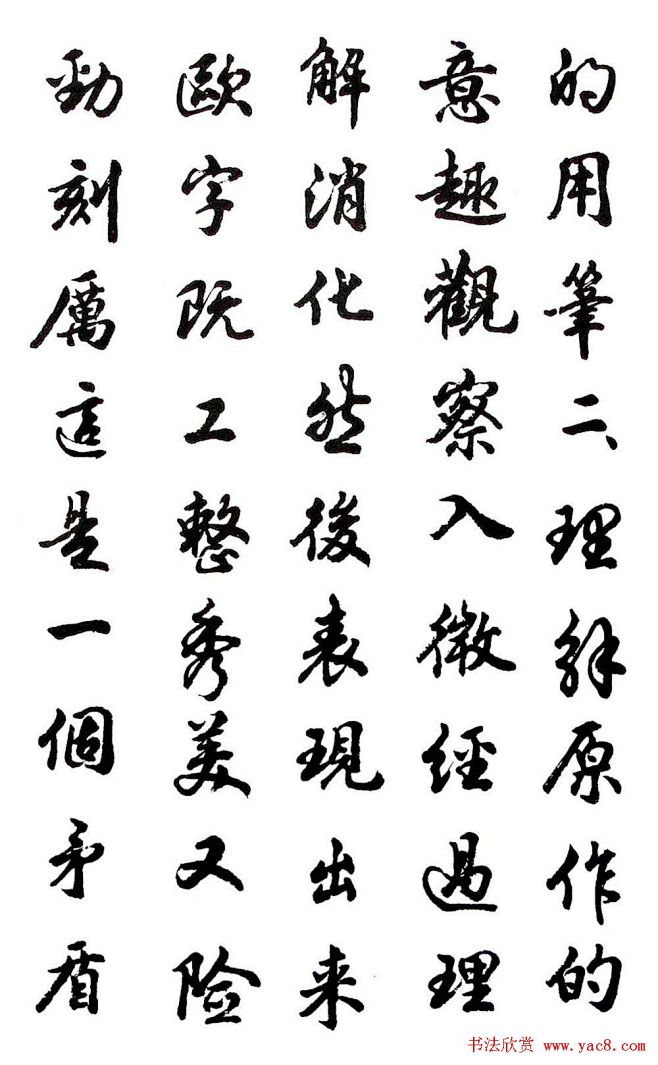 的用筆二、理解原作的
意趣觀察入微經過理
解消化然後表現出来
歐字既工整秀美又险
勁刻厲這是一個矛盾
书法欣赏 www.yac8.com